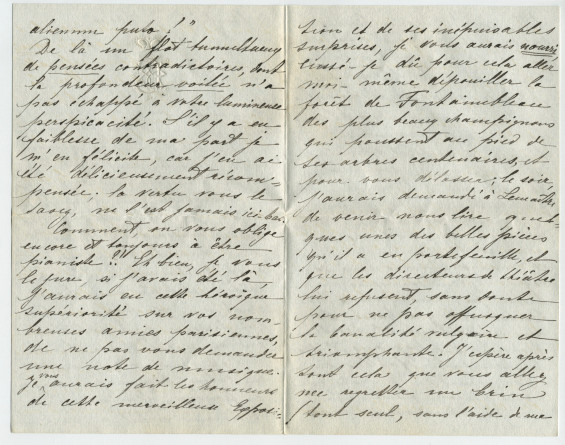 alienum puto!"
De là un flot tumultueux
de pensées contradictoires, dont
la profondeur voilée n'a
pas échappé à votre lumineuse
perspicacité. S'il y a eu
faiblesse de ma part je
m'en félicite, car j'en ai
été délicieusement récom-
pensée; la vertu vous le
savez, ne l'est jamais ici bas.
Comment, on vous oblige
encore et toujours à être
pianiste?! Eh bien, je vous
le jure, si j'avais été là
j'aurais eu cette héroïque
supériorité sur vos nom-
breuses amies parisiennes,
de ne pas vous demander
une note de musique.
Je vous aurais fait les honneurs
de cette merveilleuse Exposi-
tion et de ses inépuisables
surprises, je vous aurais nourri
dussé-je pour cela aller
moi-même dépouiller la
forêt de Fontainebleau
des plus beaux champignons
qui poussent au pied de
ses arbres centenaires, et
pour vous délasser, le soir,
j'aurais demandé à Lemaître
de venir nous lire quel-
ques unes des belles pièces
qu'il a en portefeuille, et
que les directeurs de théâtre
lui refusent, sans doute
pour ne pas offusquer
la banalité vulgaire et
triomphante. J'espère après
tout cela que vous allez
me regretter un brin
(tout seul, sans l'aide de ma